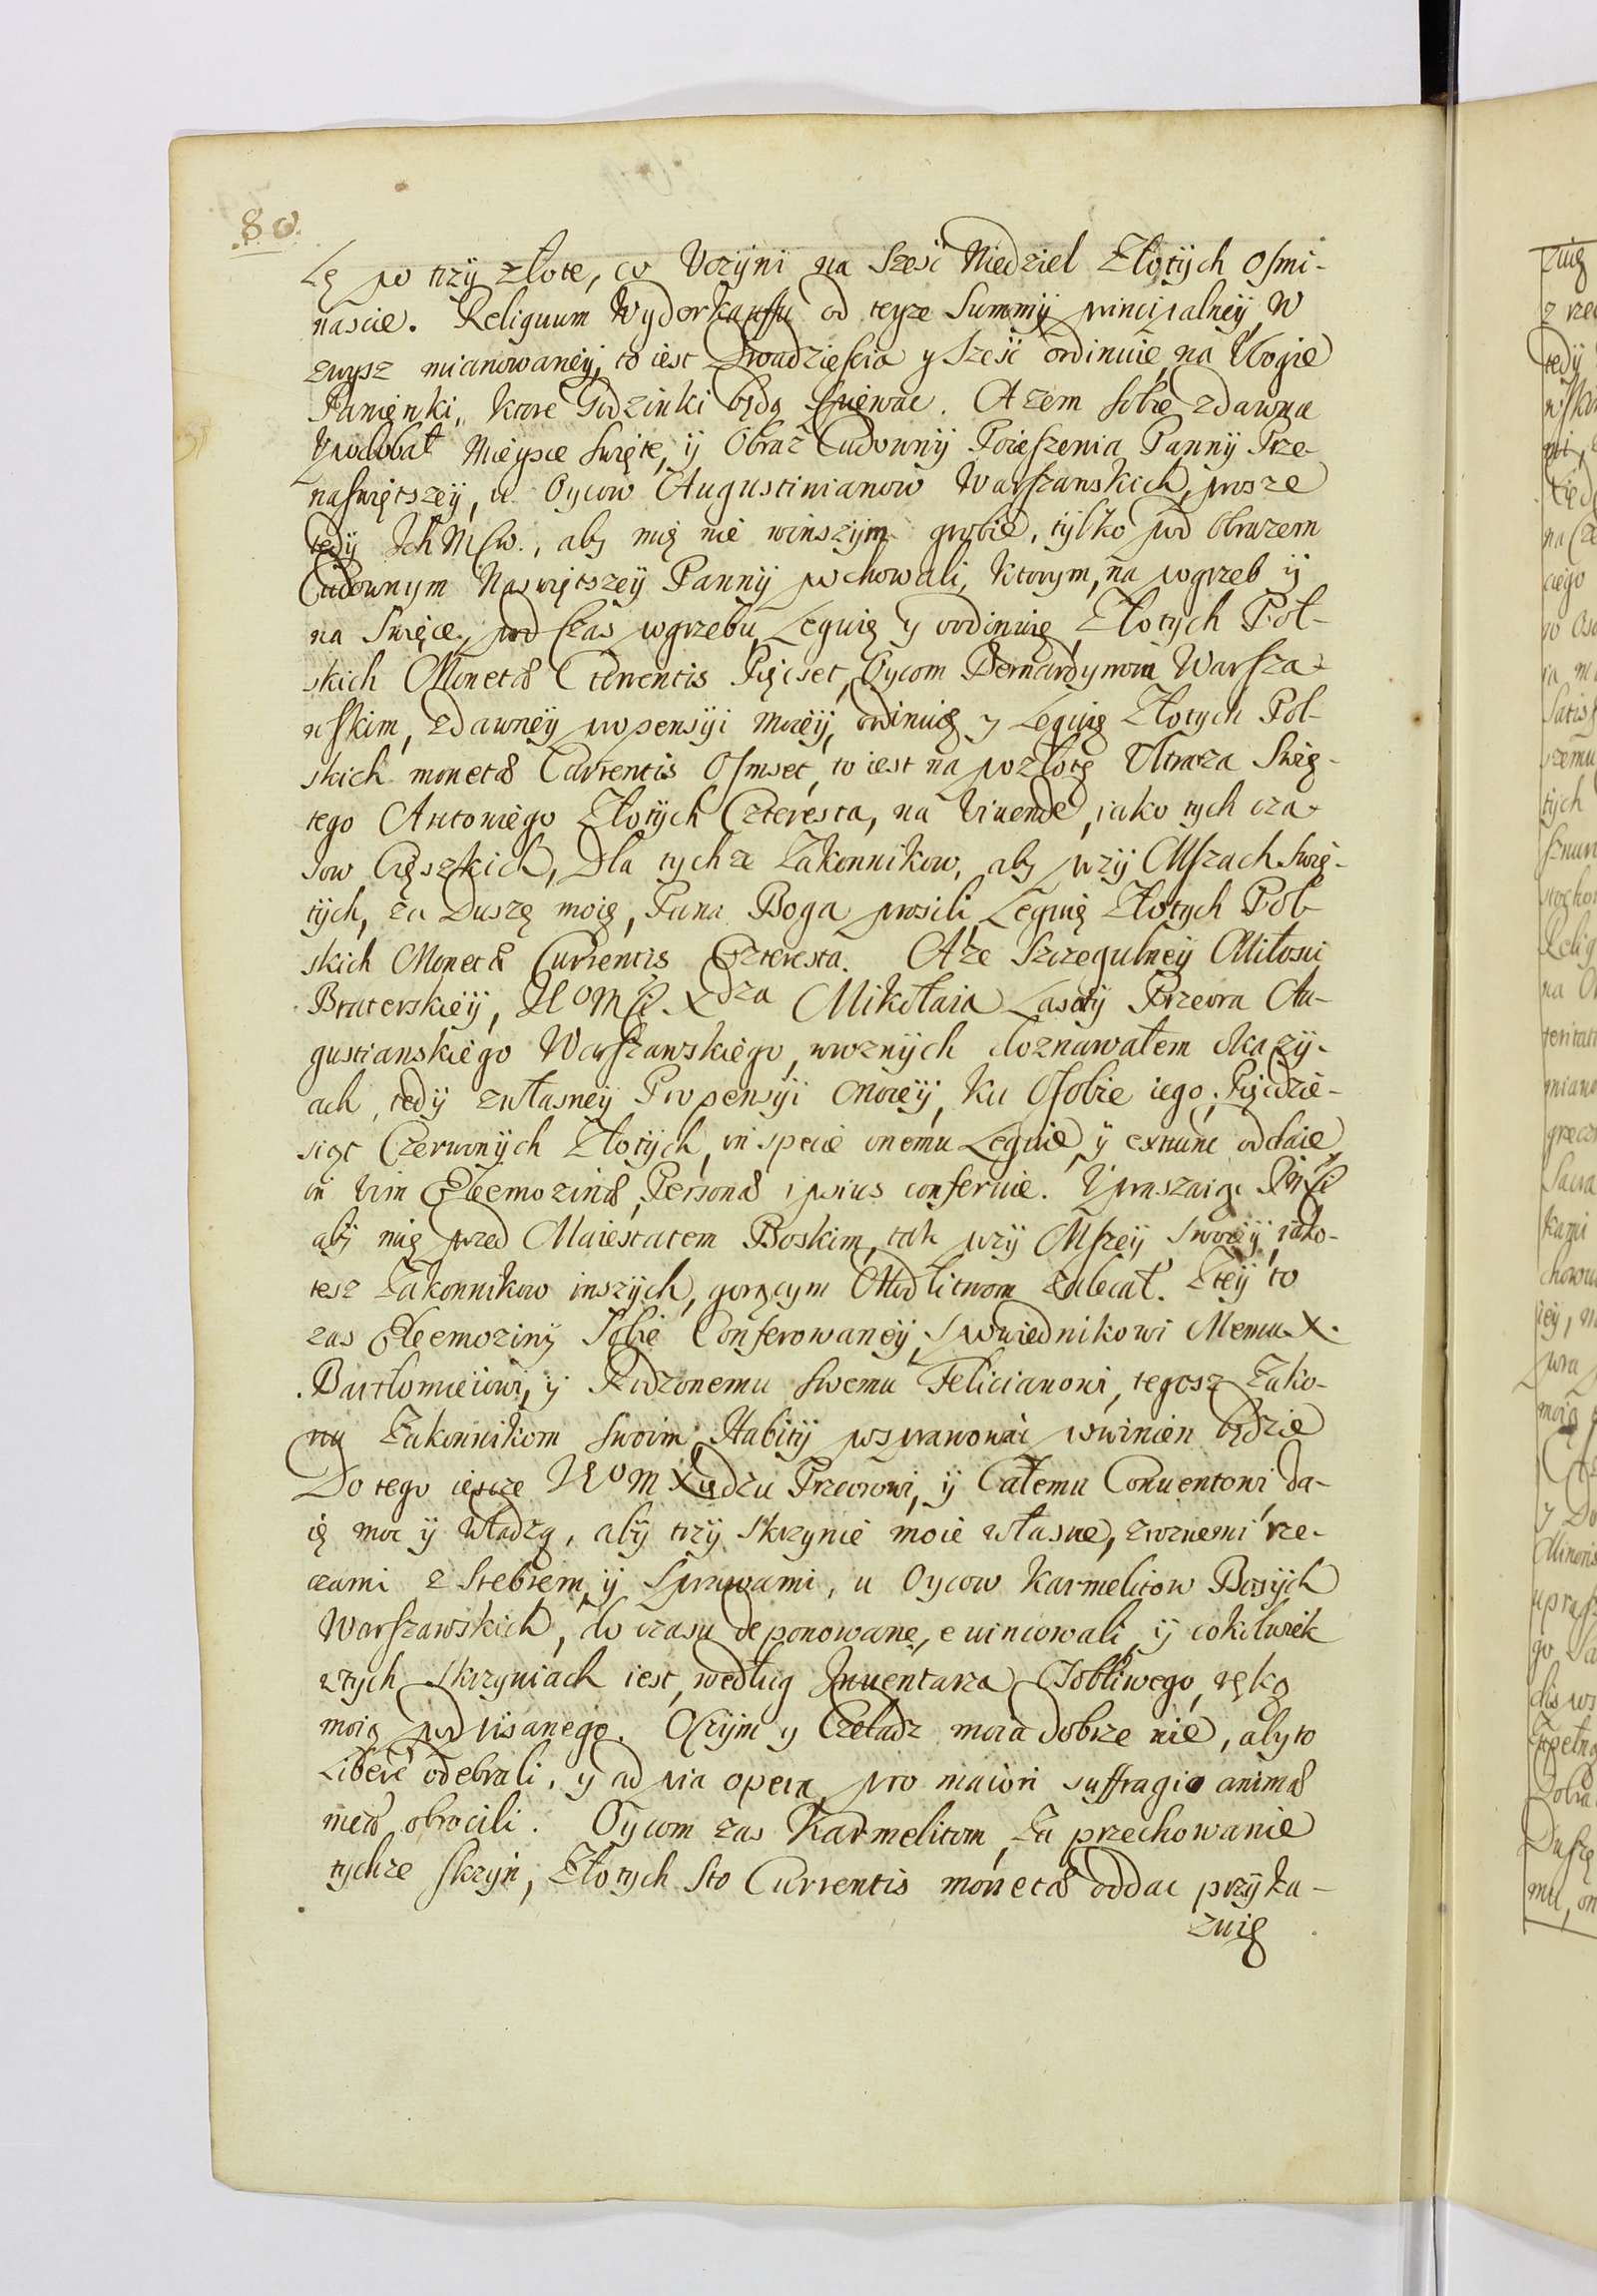 80.
Lę po trzÿ złote, co Vczÿni na Sześć Niedziel Złotÿch Osmi-
nascie. Reliquum Wyderkauffu od teyze Summÿ principalneÿ, W
zwysz mianowaneÿ, to iest Dwadziescia y Sześć ordinuię, na Vbogie
Panienki, ktore Godzinki będą spiewac. A zem sobie zdawna
Vpodobał Mieysce Swięte, ÿ Obraz Cudownÿ Pocieszenia Pannÿ Prze-
naswiętszeÿ, u Oycow Augustinianow Warszawskich, prosze
tedÿ Ich Mśw., aby mię nie winszÿm grobie, tÿlko pod Obrazem
Cudownym Naswiętszeÿ Pannÿ pochowali, ktorym, na pogrzeb ÿ
na Swiece, pod czas pogrzebu Leguię y ordinuię, Złotych Pol-
skich Monetæ Currentis Pięcset, Oycom Bernardynom Warsza-
wskim, zdawneÿ propensÿi moieÿ, ordinuię y Leguię Złotych Pol-
skich monetæ Currentis Osmset, to iest na pozłotę Ołtarza Swię-
tego Antoniego Złotÿch Czterÿsta, na Viuendę, iako tych cza-
sow Cięszkich, Dla tychze Zakonnikow, aby przÿ Mszach Swię-
tÿch, za Duszę moię, Pana Boga prosili, Leguię Złotych Pol-
skich Monetæ Currentis Czterÿsta. A ze Szczegulneÿ Miłosci
Braterskieÿ, WoMści Xdza Mikołaia Lasotÿ Przeora Au-
gustianskiego Warszawskiego, wroznÿch doznawałem okazÿ-
ach, tedÿ zwłasneÿ Propensÿi moieÿ, ku Osobie iego, Pięcdzie-
siąt Czerwonÿch Złotÿch, in specie onemu Leguię, ÿ exnunc oddaię,
in Vim Eleemozinæ, Personæ ipsius conferuię. Vpraszaiąc
abÿ mię przed Maiestatem Boskim, tak przÿ Mszeÿ Swoieÿ, iako-
tesz Zakonnikow inszÿch, gorącym Modlitwom zalecał. Zteÿ to
zas Eleemoziny Sobie Conferowaneÿ, Spowiednikowi Memu X.
Bartłomieiowi, ÿ Rodzonemu swemu Felicianowi, tegosz Zako-
nu Zakonnikom swoim Habitÿ posprawować powinien będzie
Do tego iescze WoM Xiędzu Przeorowi, ÿ Całemu Conuentowi, da-
ię moc ÿ władzą, abÿ trzÿ Skrzynie moie własne, zroznemi rze-
czami z Srebrem, ÿ Sprawami, u Oycow Karmelitow Bosÿch
Warszawskich, do czasu deponowane, euincowali, ÿ cokolwiek
wtych skrzyniach iest, według Inuentarza Osobliwego, ręką
moią podpisanego. Oczÿm y Czeladz moia dobrze wie, aby to
Liberè odebrali, y ad pia opera, pro maiori suffragio animæ
meæ, obrocili. Oycom zas Karmelitom, za przechowanie
tychze skrzÿń, Złotych Sto Currentis monetæ oddac przÿka-
zuię